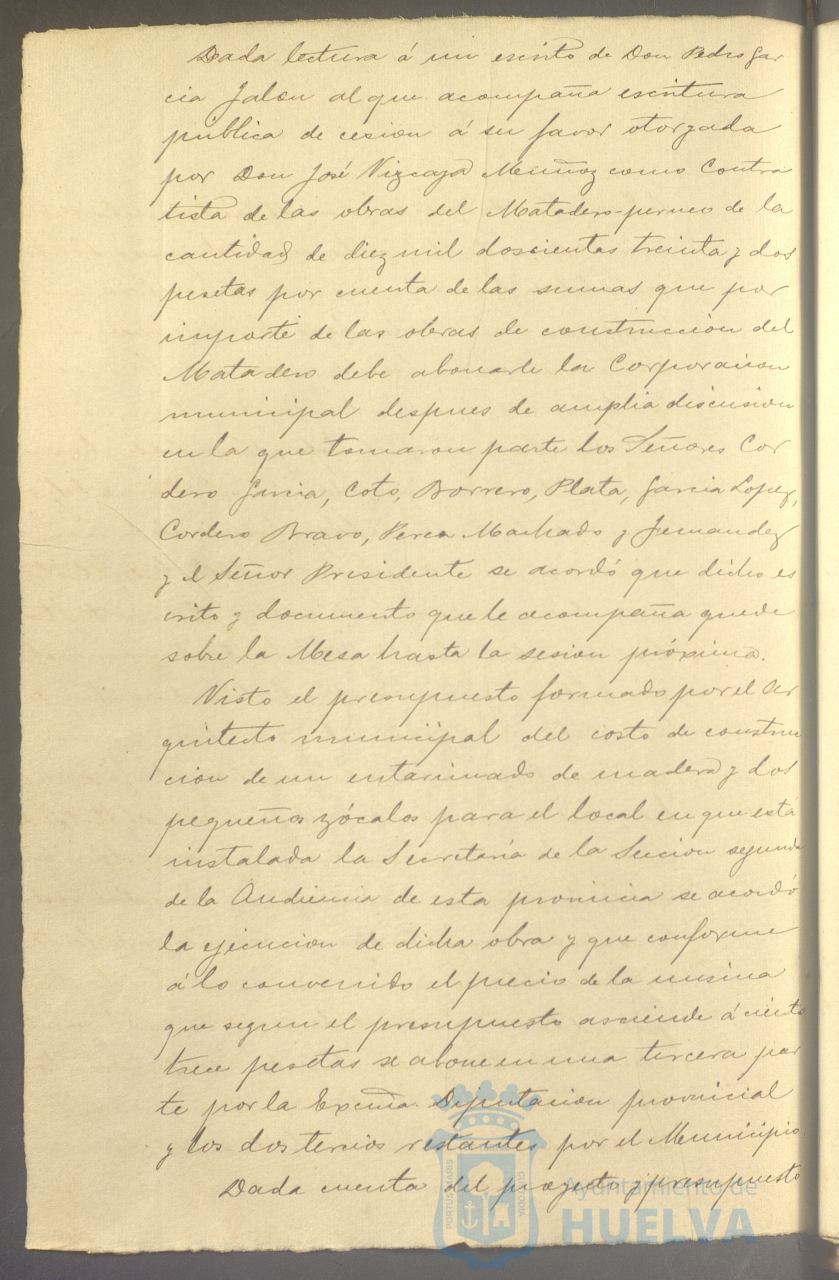 Dada lectura á un escrito de Don Pedro Gar
cia Jalon al que acompaña escritura
pública de cesion á su favor otorgada
por Don José Vizcaya Muñoz como Contra
tista de las obras del Matadero-perneo de la
cantidad de diez mil doscientas treinta y dos
pesetas por cuenta de las sumas que por
importe de las obras de construccion del
Matadero debe abonarle la Corporacion
municipal despues de amplia discusion
en la que tomaron parte los Señores Cor
dero Garcia, Coto, Borrero, Plata, Garcia Lopez,
Cordero Bravo, Perea Machado y Fernandez
y el Señor Presidente se acordó que dicho es
crito y documento que le acompaña quede
sobre la Mesa hasta la sesion próxima.
Visto el presupuesto formado por el Ar
quitecto municipal del costo de construc
cion de un entarimado de madera y dos
pequeños zócalos para el local en que está
instalada la Secretaría de la Seccion segunda
de la Audiencia de esta provincia se acordó
la ejecucion de dicha obra y que conforme
á lo convenido el precio de la misma
que segun el presupuesto asciende á ciento
trece pesetas se abone en una tercera par
te por la Excma. Diputacion provincial
y los dos tercios restantes por el Municipio
Dada cuenta del proyecto y presupuesto
Ayuntamiento de
HUELVA
PORTUS MARIS
CUSTODIA